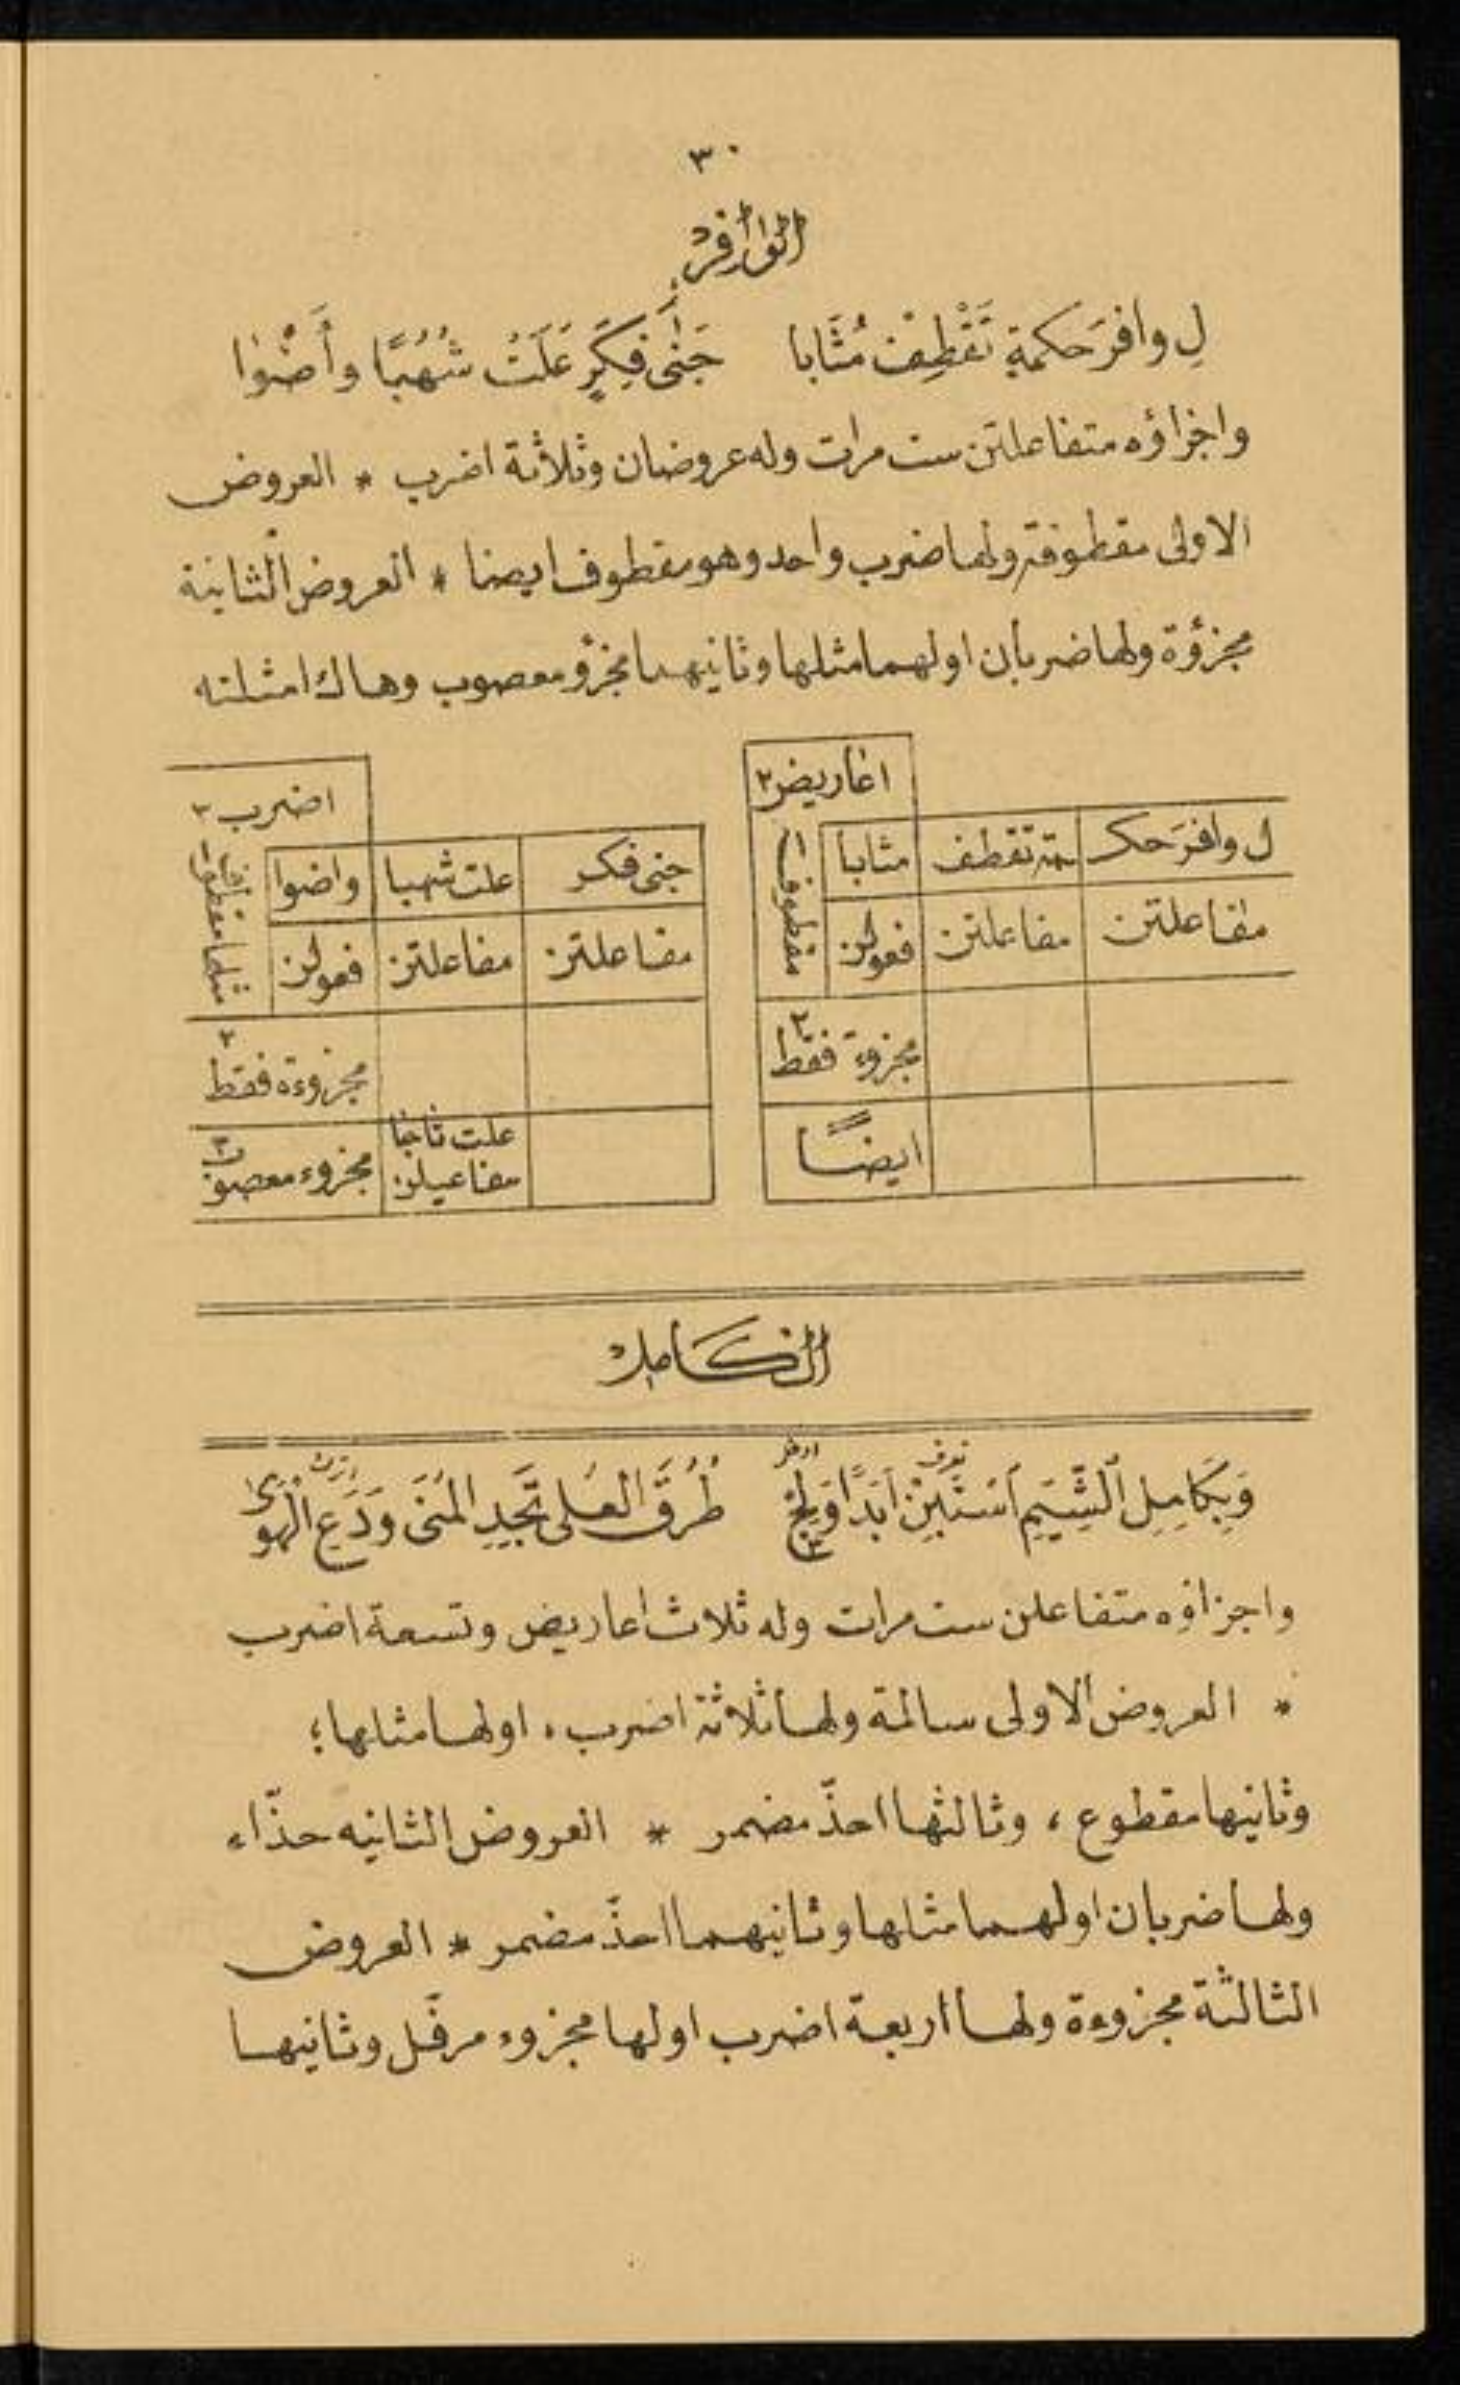 ٣٠
الوافر
لِ وافرَ حكمةٍ تَقْطِفْ مُثَابا جَنٰى فِكَرٍ عَلَتْ شُهُبًا وأَضْوٰا
واجزاؤه متفاعلتن ست مرات وله عروضان وثلاثة اضرب * العروض
الاولى مقطوفة ولها ضرب واحد وهو مقطوف ايضا * العروض الثانية
مجزؤة ولها ضربان اولهما مثلها وثانيهما مجزؤ معصوب وهاك امثلته
اعاريض ٢
ل وافرَ حكـ ـمة تقطف مثابا
مفاعلتن مفاعلتن فعولن
مقطوف ١
٢ مجزوءة فقط
ايضًا
اضرب ٣
جنى فكر علت شهبا واضوا
مفاعلتن مفاعلتن فعولن
مثلها مقطوف ١
٢ مجزوءة فقط
علت تاجا
مفاعيلن
٣ مجزوء معصوب
الكامل
وَبِكَامِلِ ٱلشِّيَمِ ٱسْتَبِنْ أَبَدًا وَلِجْ طُرُقَ العُلى تَجِدِ المُنَى وَدَعِ الْهَوٰى
واجزاؤه متفاعلن ست مرات وله ثلاث اعاريض وتسعة اضرب
* العروض الاولى سالمة ولها ثلاثة اضرب، اولها مثلها؛
وثانيها مقطوع، وثالثها احذّ مضمر * العروض الثانيه حذّاء
ولها ضربان اولهما مثلها وثانيهما احذّ مضمر * العروض
الثالثة مجزوءة ولها اربعة اضرب اولها مجزوء مرفّل وثانيها